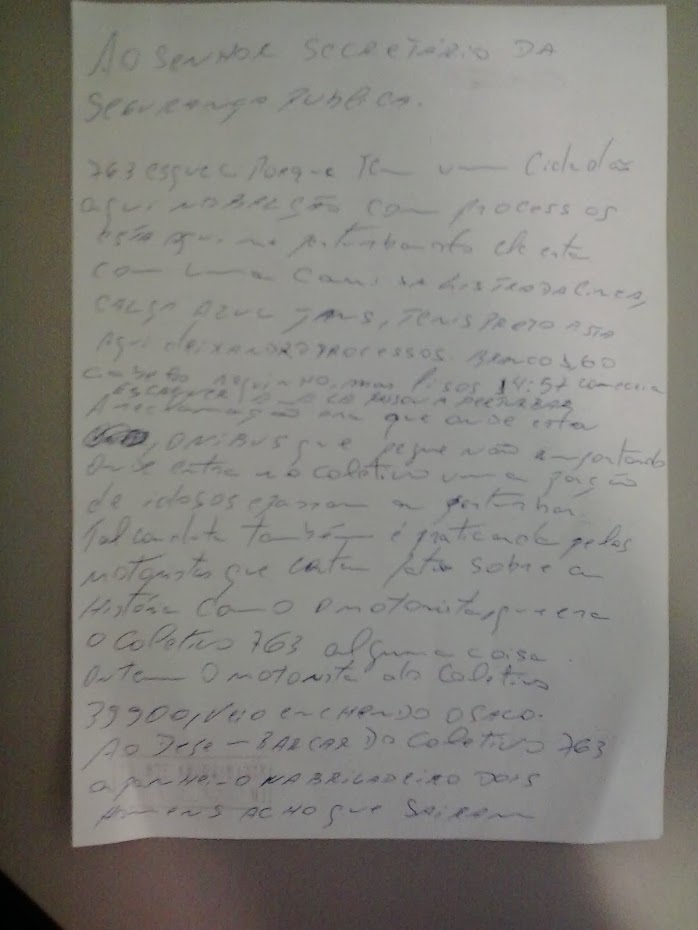 AO SENHOR SECRETÁRIO DA
SEGURANÇA PUBLICA.
763 esqueci Porque Tem um Cidadão
aqui NO BALCÃO com processos
ESTÁ aqui me perturbando ele esta
com uma CAMISA LISTRADA CINZA,
CALÇA AZUL JANS, TENIS PRETO ASTA
Aqui deixANDO PROCESSOS. BRANCO 1,60
cabelo, mas lisos 14:57 comecei a
ESCREVER A PERTURBAR
A reclamação era que onde esta
, ONIBUS que pegue não importando
Onde entra no coletivo uma porção
de idosos e passam a perturbar.
Tal conduta também é praticada pelos
motoristas que contam sobre a
História com o O motorista, que era
O coletivo 763 alguma coisa.
Ontem O motorista do Coletivo
39900, Veio enCHENDO O SACO.
Ao Dese-BARCAR DO COLETIVO 763
apanHei-O NA BRIGADEIRO DOIS
HOMENS ACHO que SAIRAM